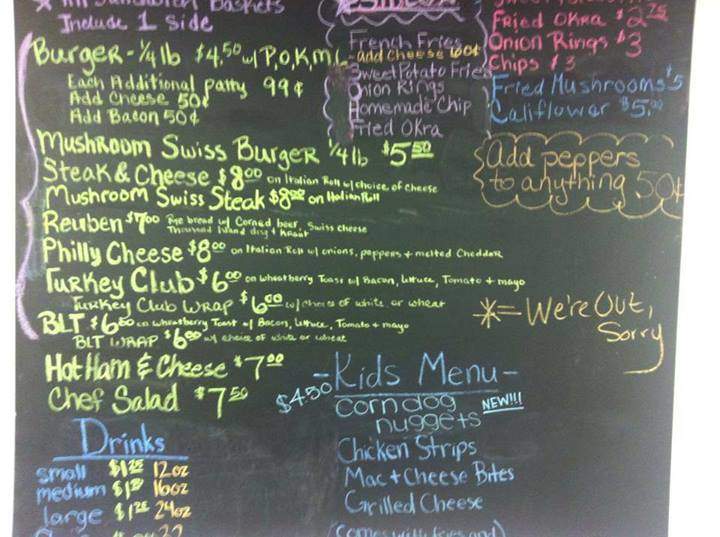 * All Sandwich Baskets
Include 1 Side
Burger - 1/4 lb $4.50 w/ P,O,K,M,L
Each Additional patty 99¢
Add Cheese 50¢
Add Bacon 50¢
Mushroom Swiss Burger 1/4 lb $5.50
Steak & Cheese $8.00 on Italian Roll w/ choice of cheese
Mushroom Swiss Steak $8.00 on Italian Roll
Reuben $7.00 Rye bread w/ Corned beef, Swiss cheese
Thousand Island drsg & Kraut
Philly Cheese $8.00 on Italian Roll w/ onions, peppers + melted Cheddar
Turkey Club $6.00 on wheatberry Toast w/ Bacon, Lettuce, Tomato + mayo
Turkey Club Wrap $6.00 w/ choice of white or wheat
BLT $6.50 on wheatberry Toast w/ Bacon, Lettuce, Tomato + mayo
BLT WRAP $6.00 w/ choice of white or wheat
Hot Ham & Cheese $7.00
Chef Salad $7.50
Drinks
small 12oz
medium 16oz
large 24oz
French Fries
-add Cheese 60¢
Sweet Potato Fries
Onion Rings
Homemade Chip
Fried Okra
Fried Okra $2.75
Onion Rings $3
Chips $3
Fried Mushrooms $5
Califlower $5.00
add peppers
to anything 50¢
*= We're Out,
Sorry
-Kids Menu-
$4.50
corn dog
nuggets NEW!!!
Chicken Strips
Mac + Cheese Bites
Grilled Cheese
(comes with fries and)